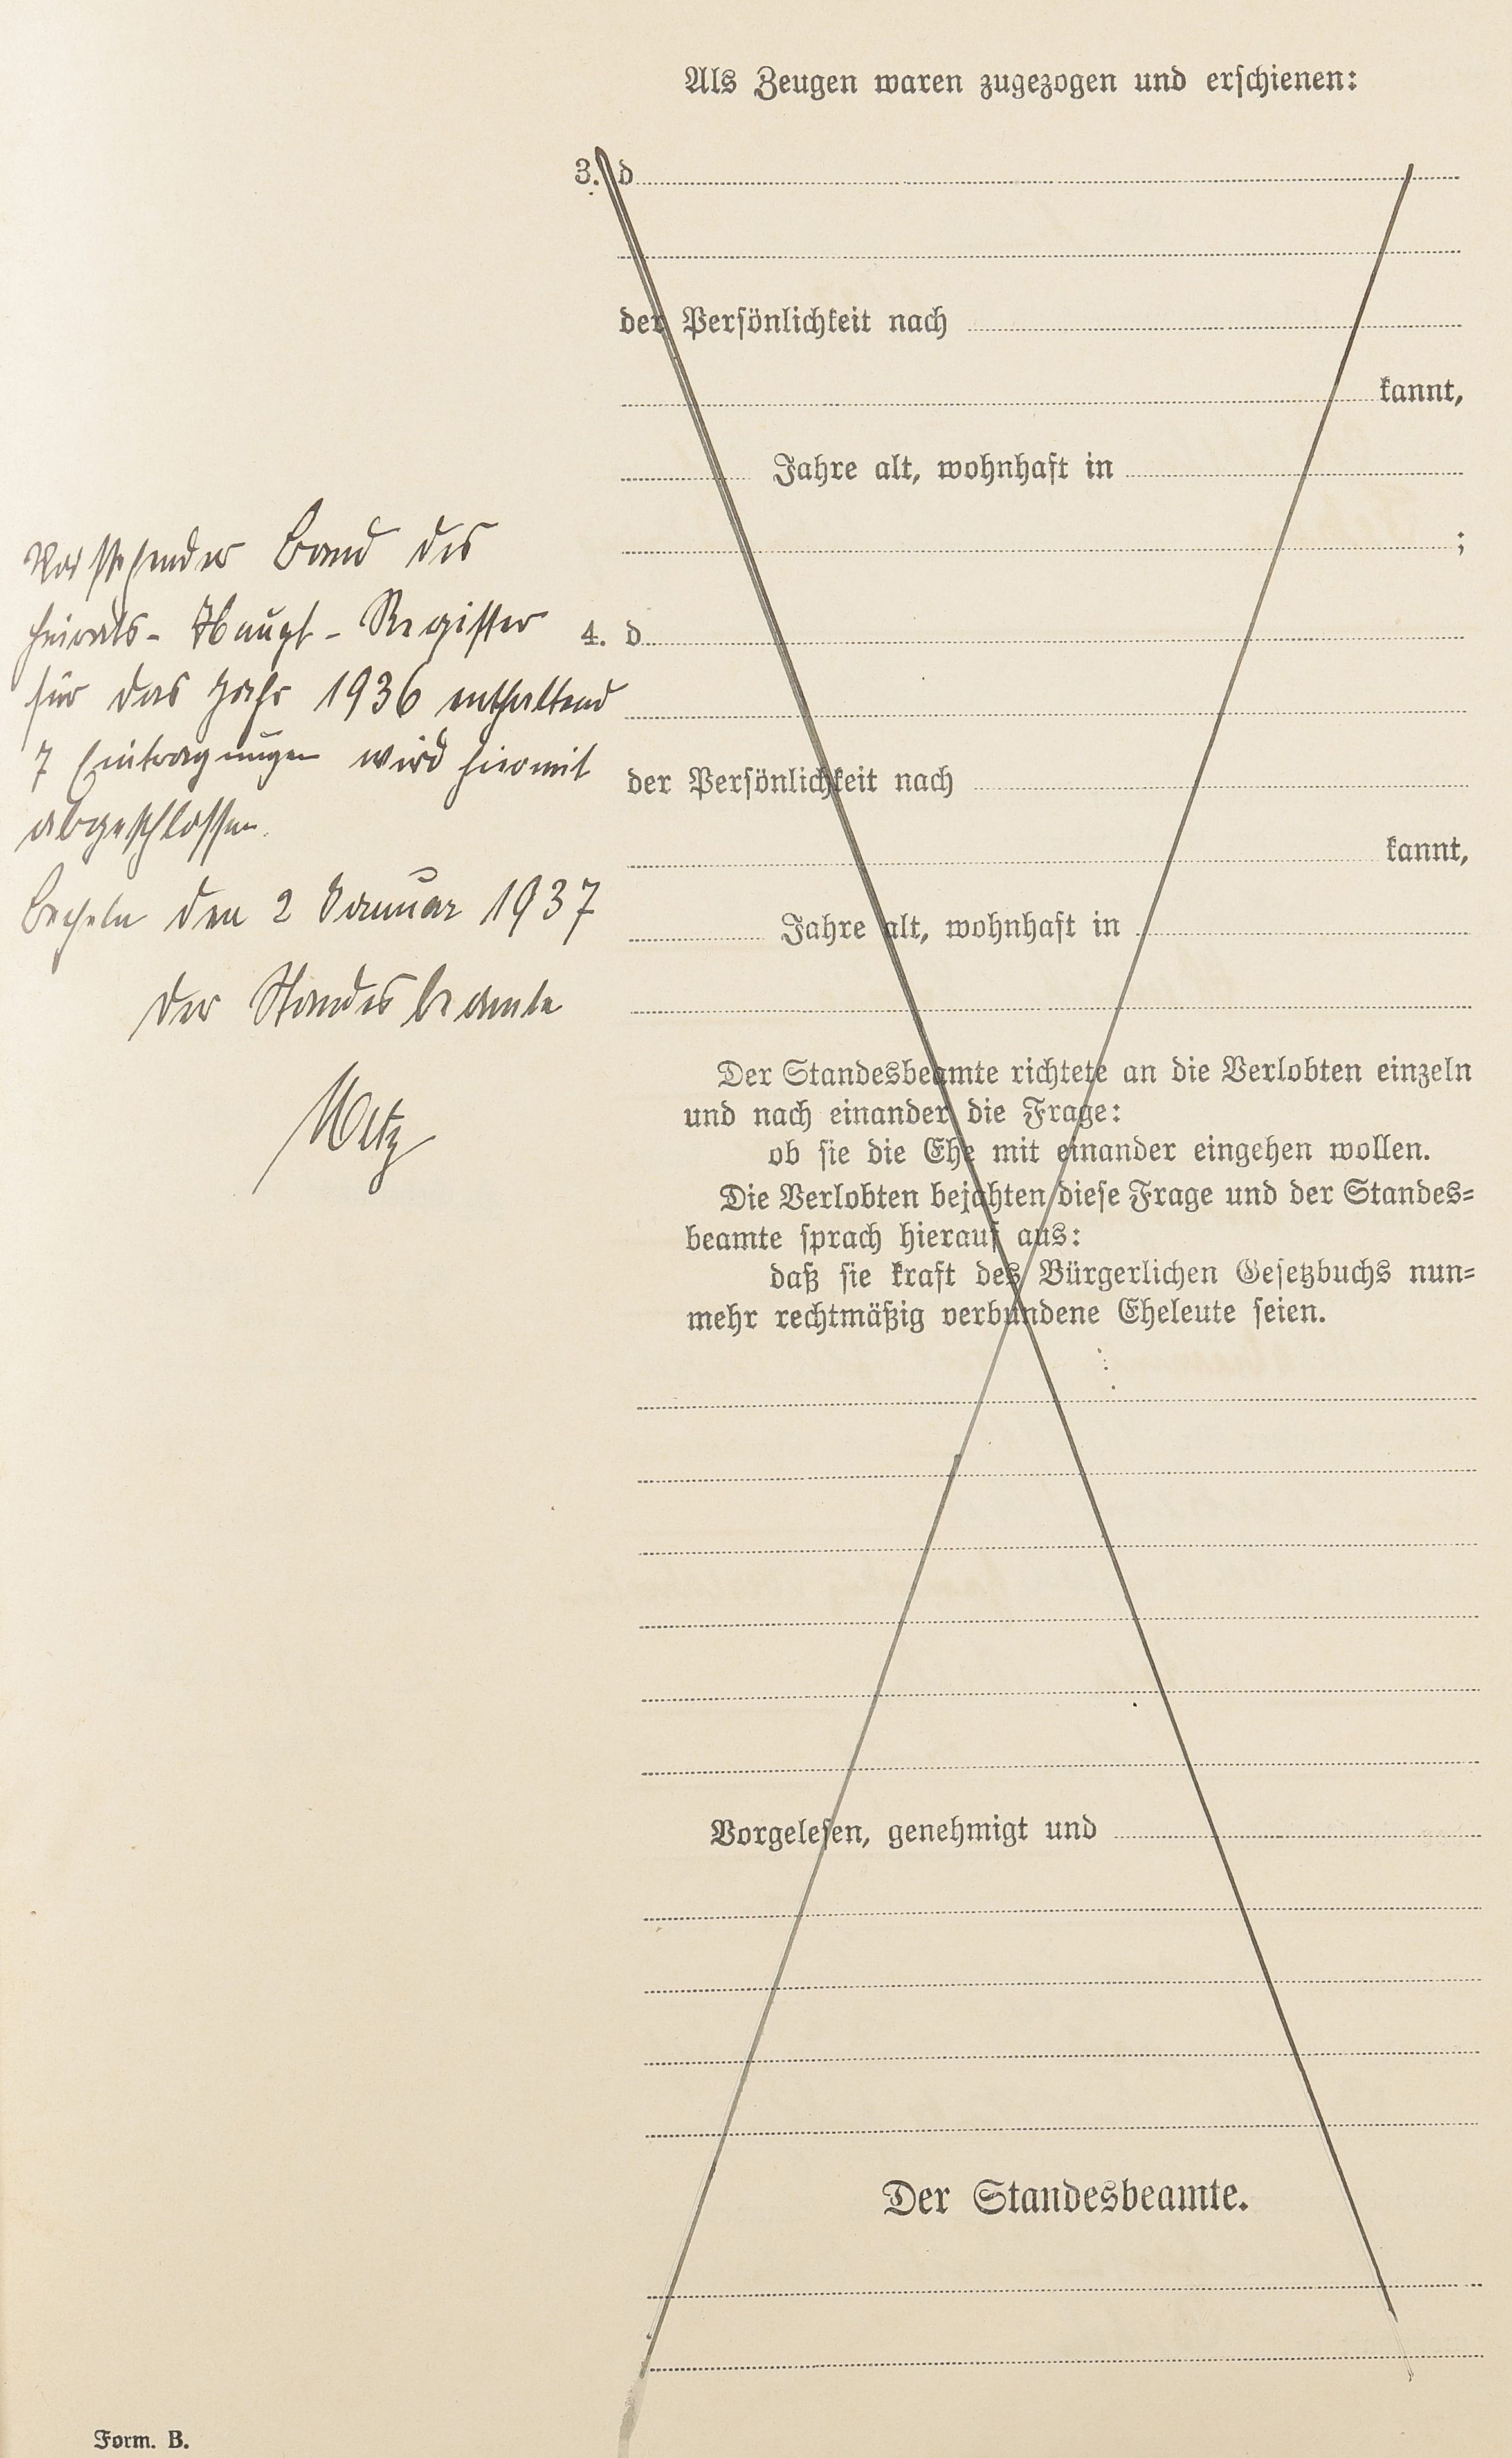 Als Zeugen waren zugezogen und erschienen:
3. d
der Persönlichkeit nach
kannt,
Jahre alt, wohnhaft in
;
4. d
der Persönlichkeit nach
kannt,
Jahre alt, wohnhaft in
Der Standesbeamte richtete an die Verlobten einzeln
und nach einander die Frage:
ob sie die Ehe mit einander eingehen wollen.
Die Verlobten bejahten diese Frage und der Standes=
beamte sprach hierauf aus:
daß sie kraft des Bürgerlichen Gesetzbuchs nun=
mehr rechtmäßig verbundene Eheleute seien.
Vorgelesen, genehmigt und
Der Standesbeamte.
Vorstehender Band des
Heirats-Haupt-Register
für das Jahr 1936 enthaltend
7 Eintragungen wird hiermit
abgeschlossen.
Becheln den 2 Januar 1937
Der Standesbeamte
Metz
Form. B.